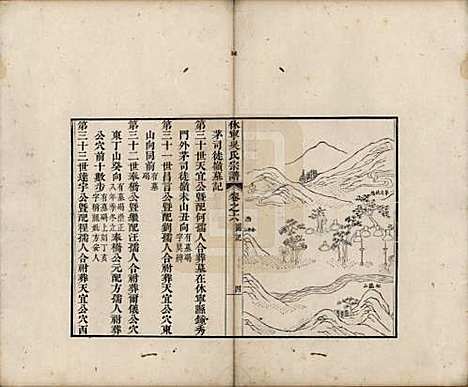 休寧吳氏宗譜
卷之六
圖記
四
茅司徒嶺墓記
第三十世天宜公暨配何孺人合葬墓在休寧縣鍾秀
門外茅司徒嶺未山丑向
第三十一世昌言公暨配劉孺人合祔葬天宜公穴東
山向同前有墓碣
第三十二世奉橋公暨配汪孺人合祔葬爾儀公穴
東丁山癸向
奉橋公元配方孺人祔葬
公穴前十數步
第三十三世達宇公暨配程孺人合祔葬天宜公穴西